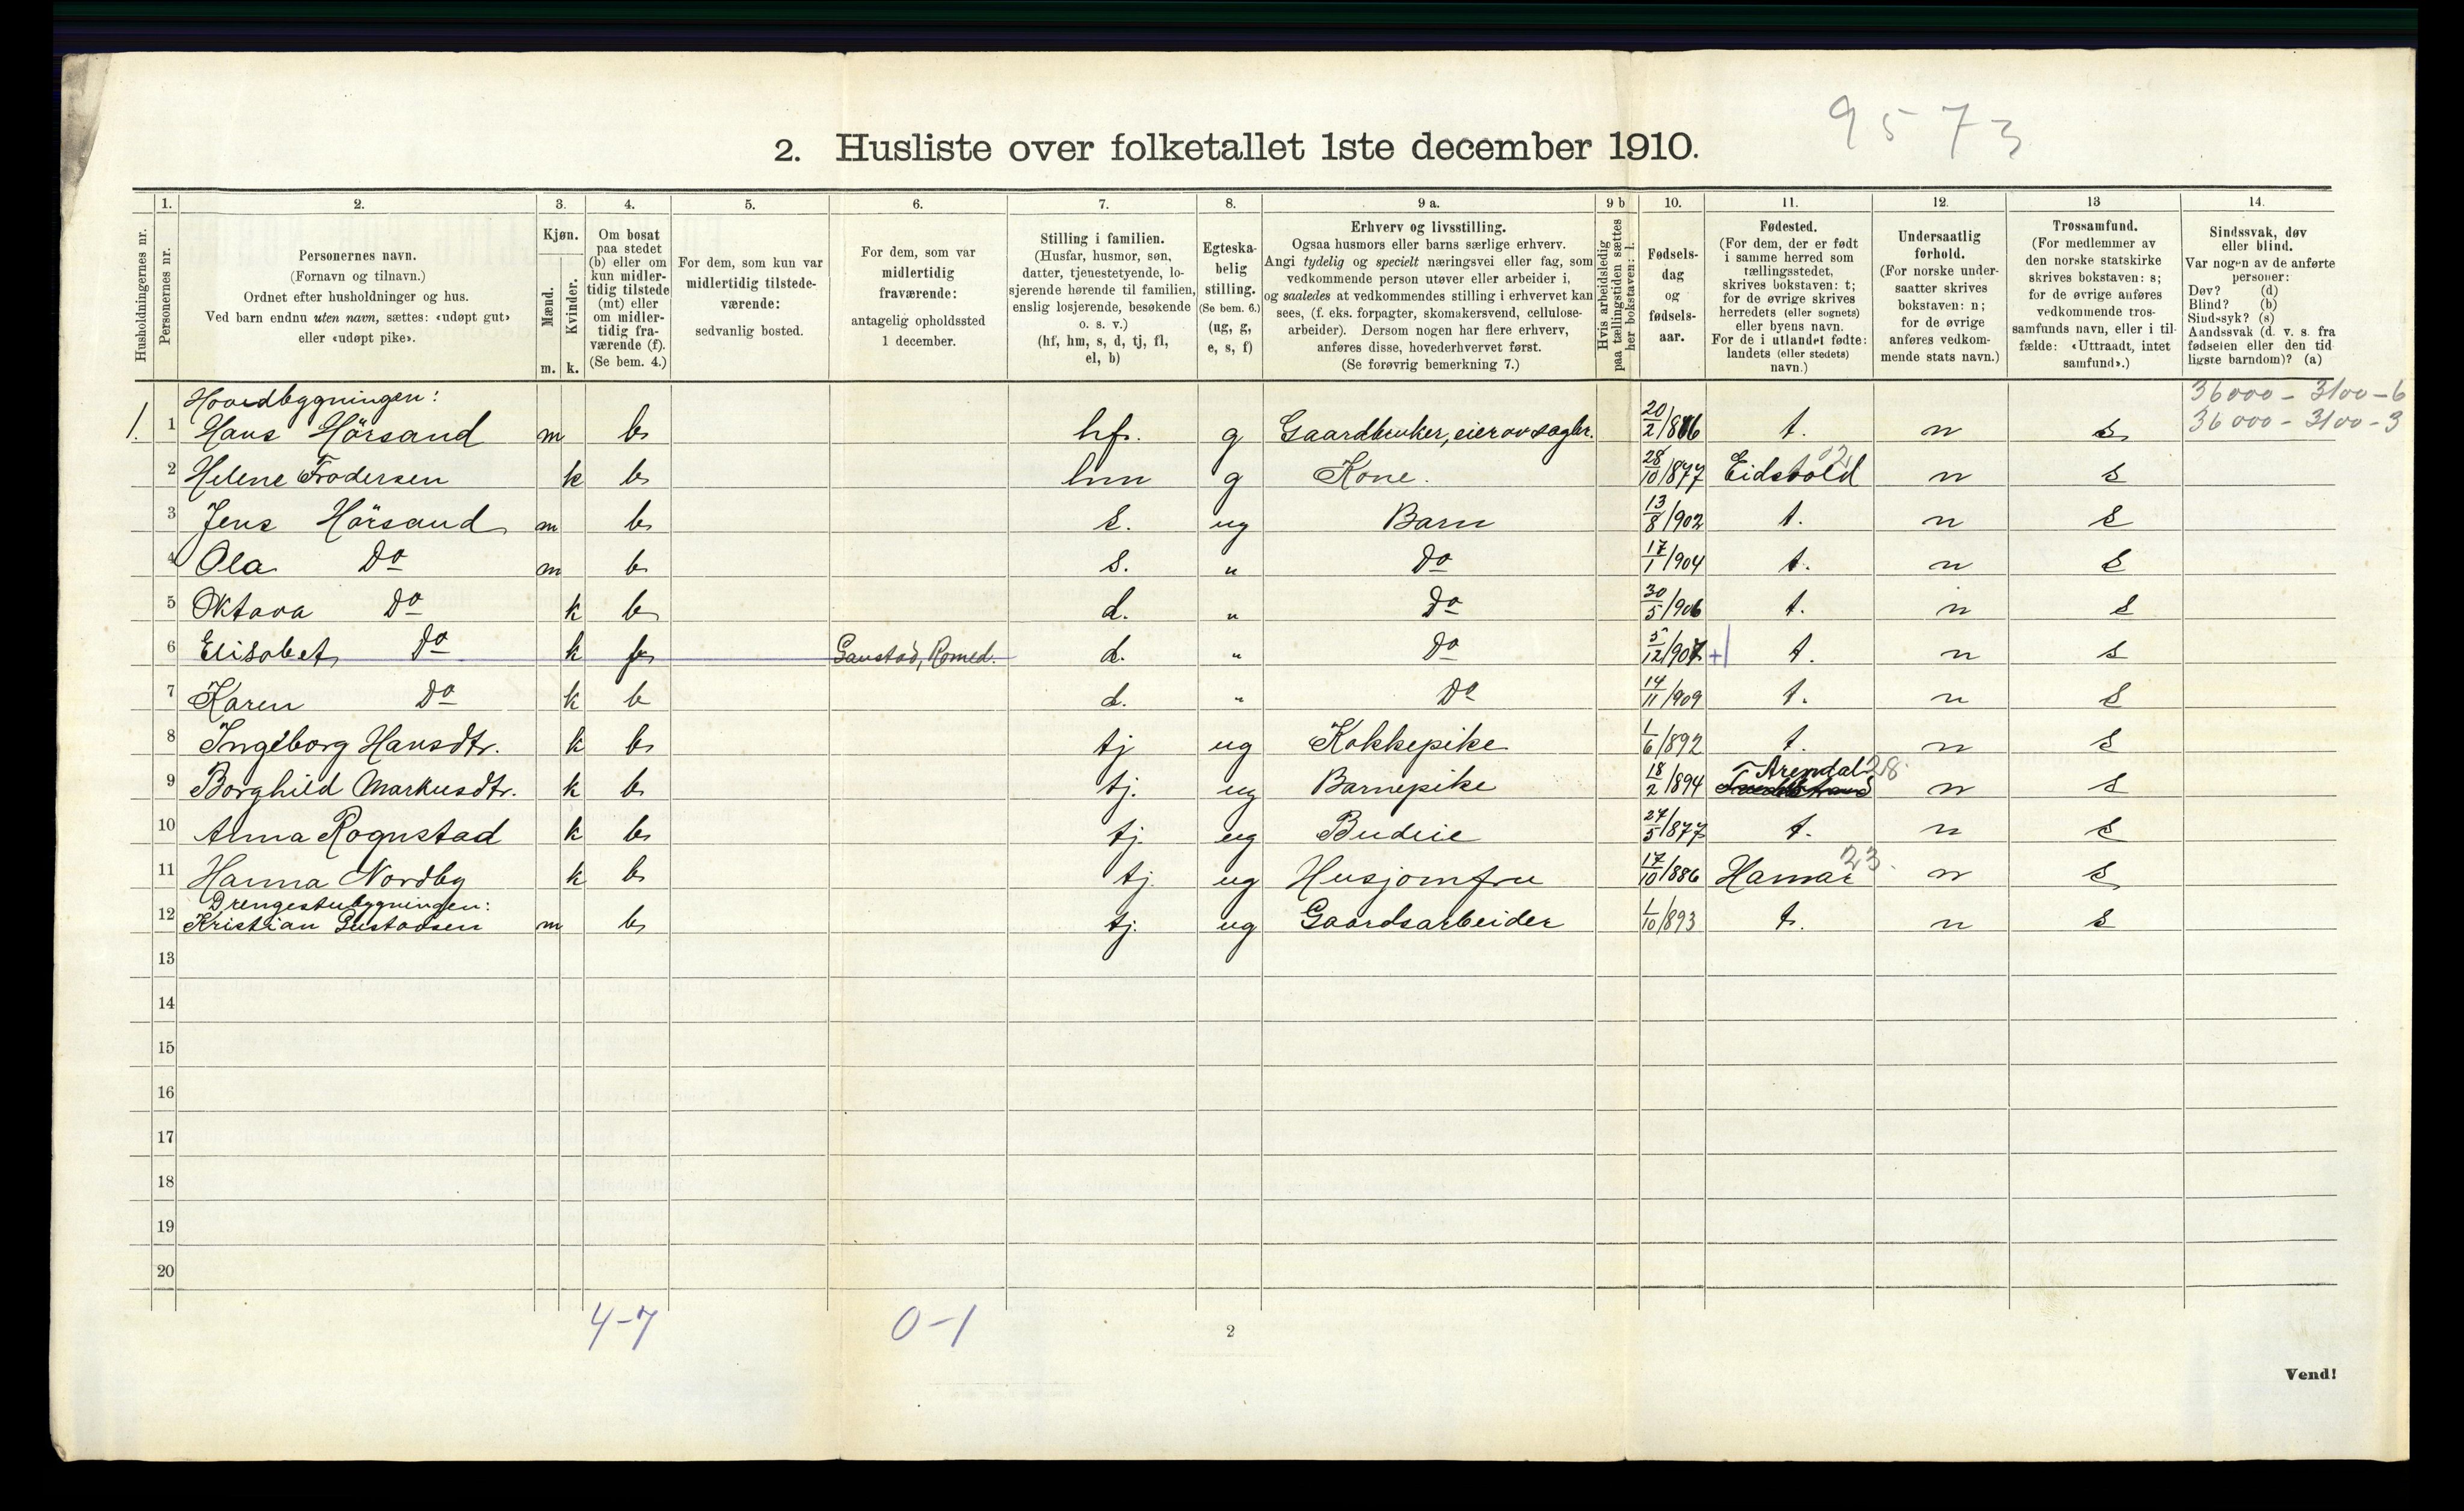 9573
2. Husliste over folketallet 1ste december 1910.
1. 2. 3. 4. 5. 6. 7. 8. 9 a. 9 b 10. 11. 12. 13 14.
Husholdningernes nr.
Personernes nr.
Personernes navn.
(Fornavn og tilnavn.)
Ordnet efter husholdninger og hus.
Ved barn endnu uten navn, sættes: «udøpt gut»
eller «udøpt pike».
Kjøn.
Mænd.
Kvinder.
m. k.
Om bosat
paa stedet
(b) eller om
kun midler-
tidig tilstede
(mt) eller
om midler-
tidig fra-
værende (f).
(Se bem. 4.)
For dem, som kun var
midlertidig tilstede-
værende:
sedvanlig bosted.
For dem, som var
midlertidig
fraværende:
antagelig opholdssted
1 december.
Stilling i familien.
(Husfar, husmor, søn,
datter, tjenestetyende, lo-
sjerende hørende til familien,
enslig losjerende, besøkende
o. s. v.)
(hf, hm, s, d, tj, fl,
el, b)
Egteska-
belig
stilling.
(Se bem. 6.)
(ug, g,
e, s, f)
Erhverv og livsstilling.
Ogsaa husmors eller barns særlige erhverv.
Angi tydelig og specielt næringsvei eller fag, som
vedkommende person utøver eller arbeider i,
og saaledes at vedkommendes stilling i erhvervet kan
sees, (f. eks. forpagter, skomakersvend, cellulose-
arbeider). Dersom nogen har flere erhverv,
anføres disse, hovederhvervet først.
(Se forøvrig bemerkning 7.)
Hvis arbeidsledig
paa tællingstiden sættes
her bokstaven: l.
Fødsels-
dag
og
fødsels-
aar.
Fødested.
(For dem, der er født
i samme herred som
tællingsstedet,
skrives bokstaven: t;
for de øvrige skrives
herredets (eller sognets)
eller byens navn.
For de i utlandet fødte:
landets (eller stedets)
navn.)
Undersaatlig
forhold.
(For norske under-
saatter skrives
bokstaven: n;
for de øvrige
anføres vedkom-
mende stats navn.)
Trossamfund.
(For medlemmer av
den norske statskirke
skrives bokstaven: s;
for de øvrige anføres
vedkommende tros-
samfunds navn, eller i til-
fælde: «Uttraadt, intet
samfund».)
Sindssvak, døv
eller blind.
Var nogen av de anførte
personer:
Døv? (d)
Blind? (b)
Sindssyk? (s)
Aandssvak (d. v. s. fra
fødselen eller den tid
ligste barndom)? (a)
Hovedbygningen: 36000 - 3100 - 6
1. 1 Hans Hörsand m b hf. g Gaardbruker, eier av sagbr. 20/2 t. n s 36000 - 3100 - 3
2 Helene Frodersen k b hm g Kone. 28/10/877 Eidsvold n s
3 Jens Hörsand m b s. ug Barn 13/8/902 t. n s
4 Ola Do m b s. " Do 17/1/904 t. n s
5 Oktava Do k b d. " Do 30/5/906 t. n s
6 Elisabet Do k f Gaustad, Romed. d. " Do 5/12/907 +1 t. n s
7 Karen Do k b d. " Do 14/11/909 t. n s
8 Ingeborg Hansdtr. k b tj ug Kokkepike 1/6/892 t. n s
9 Borghild Markusdtr. k b tj. ug Barnepike 18/2/894 Arendal 28. n s
10 Anna Rognstad k b tj. ug Budeie 27/5/877 t. n s
11 Hanna Nordby k b tj. ug Husjomfru 17/10/886 Hamar 23. n s
Drengestubygningen:
12 Kristian Gustavsen m b tj. ug Gaardsarbeider 1/10/893 t. n s
13
14
15
16
17
18
19
20
4-7 0-1
2
Vend!